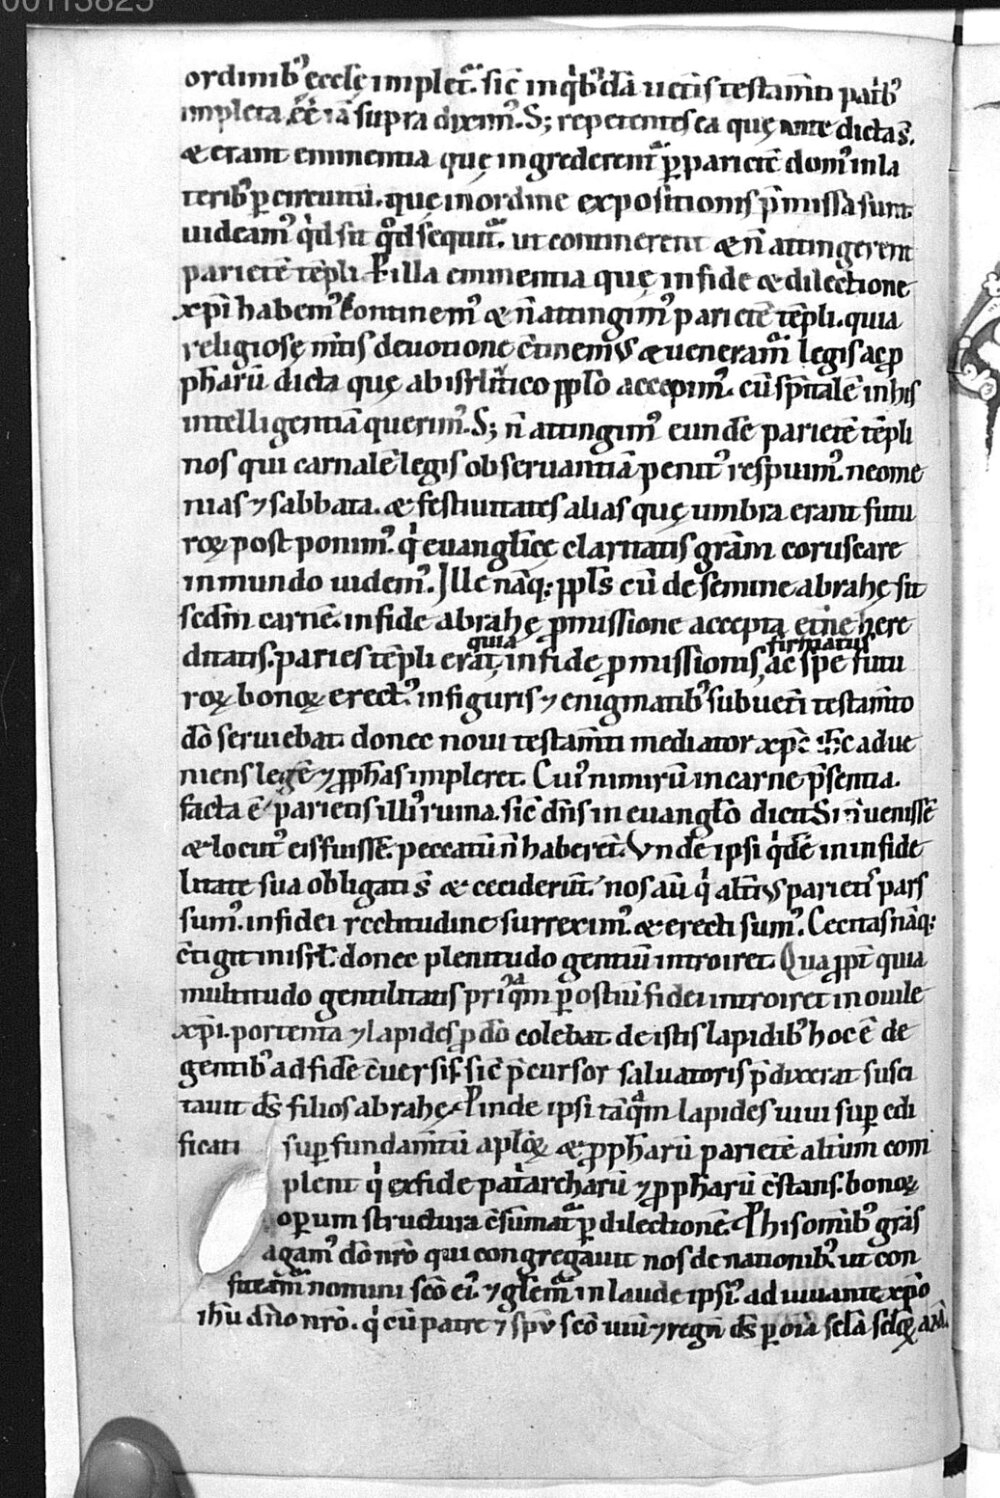 00113825
ordinibꝰ ęcclę implet᷑. sic̄ in qͥbꝰdā uet̄is testam̄ti patͥbꝰ
impleta ee᷑ iā supra diximꝰ. S; repetentes ea quę ante dicta s̄.
& erant eminentia quę ingrederent᷑ ꝑ parietē domꝰ in la
teribꝰ ꝑ circuitū. quę in ordine expositionis p̄missa sunt.
uideamꝰ qͥd sit qd̄ sequit᷑. ut continerent & n̄ attingerent
parietē tēpli. P illa eminentia quę in fide & dilectione
xp̄i habemꝰ continemꝰ & n̄ attingimꝰ parietē tēpli. quia
religiosę m̄tis deuotione c̄tinemꝰ & ueneram᷑ legis ac ꝓ
ph̄arū dicta quę ab isrl̄itico ppl̄o accepimꝰ. cū sp̄italē in his
intelligentiā querimꝰ. S; n̄ attingimꝰ eundē parietē tēpli
nos qui carnalē legis obseruantiā penitꝰ respuimꝰ. neome
nias ⁊ sabbata. & festiuitates alias quę umbra erant futu
roꝝ postponimꝰ. qͥ euangl̄icę claritatis grām coruscare
in mundo uidemꝰ. Ille nāq; ppl̄s cū de semine abrahę sit
scd̄m carnē. in fide abrahę ꝓmissione accepta et̄ne here
ditatis. paries tēpli erat, quia in fide ꝓmissionis, firmatus ac spe futu
roꝝ bonoꝝ erectꝰ. in figuris ⁊ enigmatibꝰ sub uet̄i testam̄to
dō seruiebat. donec noui testam̄ti mediator xp̄c ih̄c adue
niens legē ⁊ ꝓph̄as impleret. Cuiꝰ nimirū in carne p̄sentia.
facta ē parietis illiꝰ ruina. sic̄ dn̄s in euangl̄o dicit. Si n̄ uenissē
& locutꝰ eis fuissē. peccatū n̄ haberet̄. Vnde ipsi qͥdē in infide
litate sua obligati s̄ & ceciderūt. nos aū qͥ alt̄iꝰ parietis pars
sumꝰ. in fidei rectitudine surreximꝰ. & erecti sumꝰ. Cecitas nāq;
c̄tigit in isrl̄. donec plenitudo gentiū introiret. Qua ꝓpt̄ quia
multitudo gentilitatis priꝰqͣm ꝑ ostiū fidei introiret in ouile
xp̄i. portenta ⁊ lapides ꝓ dō colebat. de istis lapidibꝰ hoc ē de
gentibꝰ ad fidē c̄uersis. sic̄ p̄cursor saluatoris p̄dixerat susci
tauit ds̄ filios abrahę. Proinde ipsi tāqͣm lapides uiui suꝑ edi
ficati suꝑ fundam̄tū apl̄oꝝ & ꝓph̄arū parietē alt̄um com
plent qͥ ex fide patͥarcharū ⁊ ꝓph̄arū c̄stans. bonoꝝ
operum structura c̄sūmat᷑ ꝑ dilectionē. P his omībꝰ grās
agamꝰ dō nr̄o qui congregauit nos de nationibꝰ. ut con
fiteam᷑ nomini scō eiꝰ. ⁊ gl̄iem᷑ in laude ipsiꝰ. adiuuante xp̄o
ih̄u dn̄o nr̄o. qͥ cū patre ⁊ sp̄u scō uiuit ⁊ regn̄ ds̄ ꝑ oīa scl̄a scl̄oꝝ am̄.